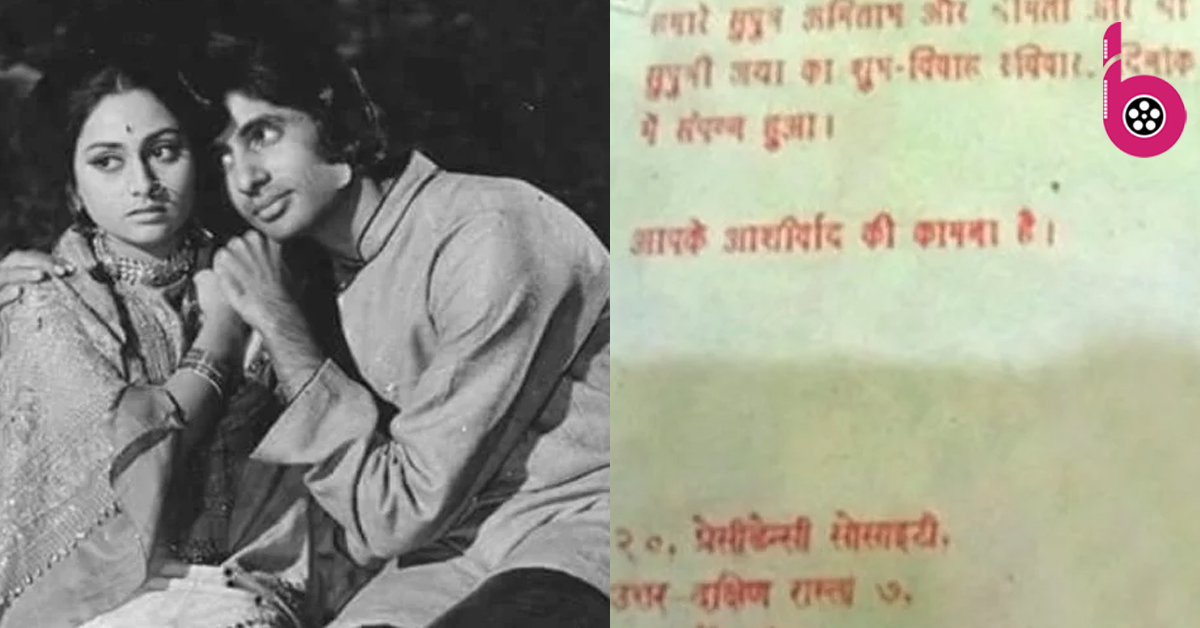 हमारे सुपुत्र अमिताभ और श्रीमती और श्री
सुपुत्री जया का शुभ-विवाह रविवार, दिनांक
में संपन्न हुआ।
आपके आशीर्वाद की कामना है।
२०, प्रेसीडेन्सी सोसाइटी,
उत्तर-दक्षिण रास्ता ७,